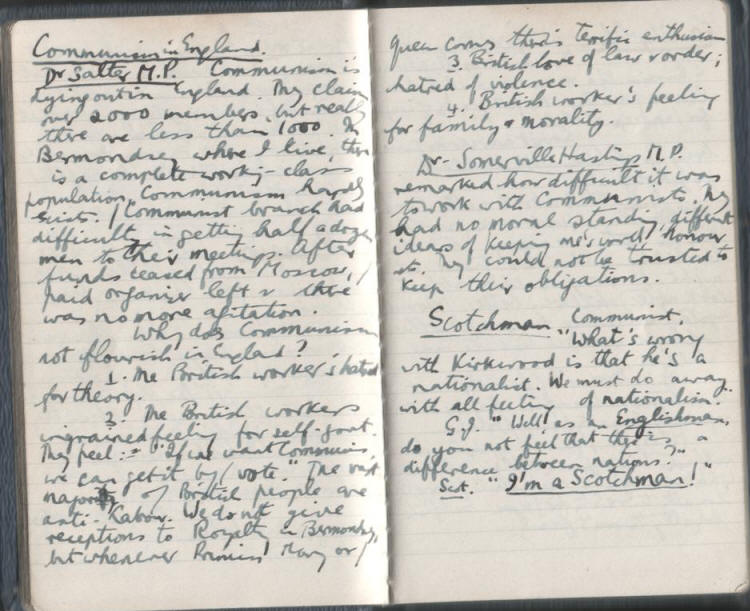 Communism in England.
Dr Salter M.P. Communism is
dying out in England. They claim
over 2000 members, but really
there are less than 1000. In
Bermondsey where I live, there
is a complete working-class
population, Communism hardly
exists. / Communist branch had
difficulty in getting half a dozen
men to their meetings. After
funds ceased from Moscow, /
paid organizer left & there
was no more agitation.
Why does Communism
not flourish in England?
1. The British worker's hatred
for theory.
2. The British workers
ingrained feeling for self-govt.
They feel :- "If we want Communism,
we can get it by / vote." The vast
majority of British people are
anti-Labour. We do not give
receptions to Royalty in Bermondsey,
but whenever Princess Mary or /
Queen comes there's terrific enthusiasm
3. British love of law & order;
hatred of violence.
4. British worker's feeling
for family & morality.
Dr Somerville Hastings M.P.
remarked how difficult it was
to work with Communists. They
had no moral standing, different
ideas of keeping one's word, honour
etc. They could not be trusted to
keep their obligations.
Scotchman Communist.
"What's wrong
with Kirkwood is that he's a
nationalist. We must do away
with all feeling of nationalism."
G.J. "Well as an Englishman,
do you not feel that there is a
difference between nations?"
Scot. "I'm a Scotchman!"